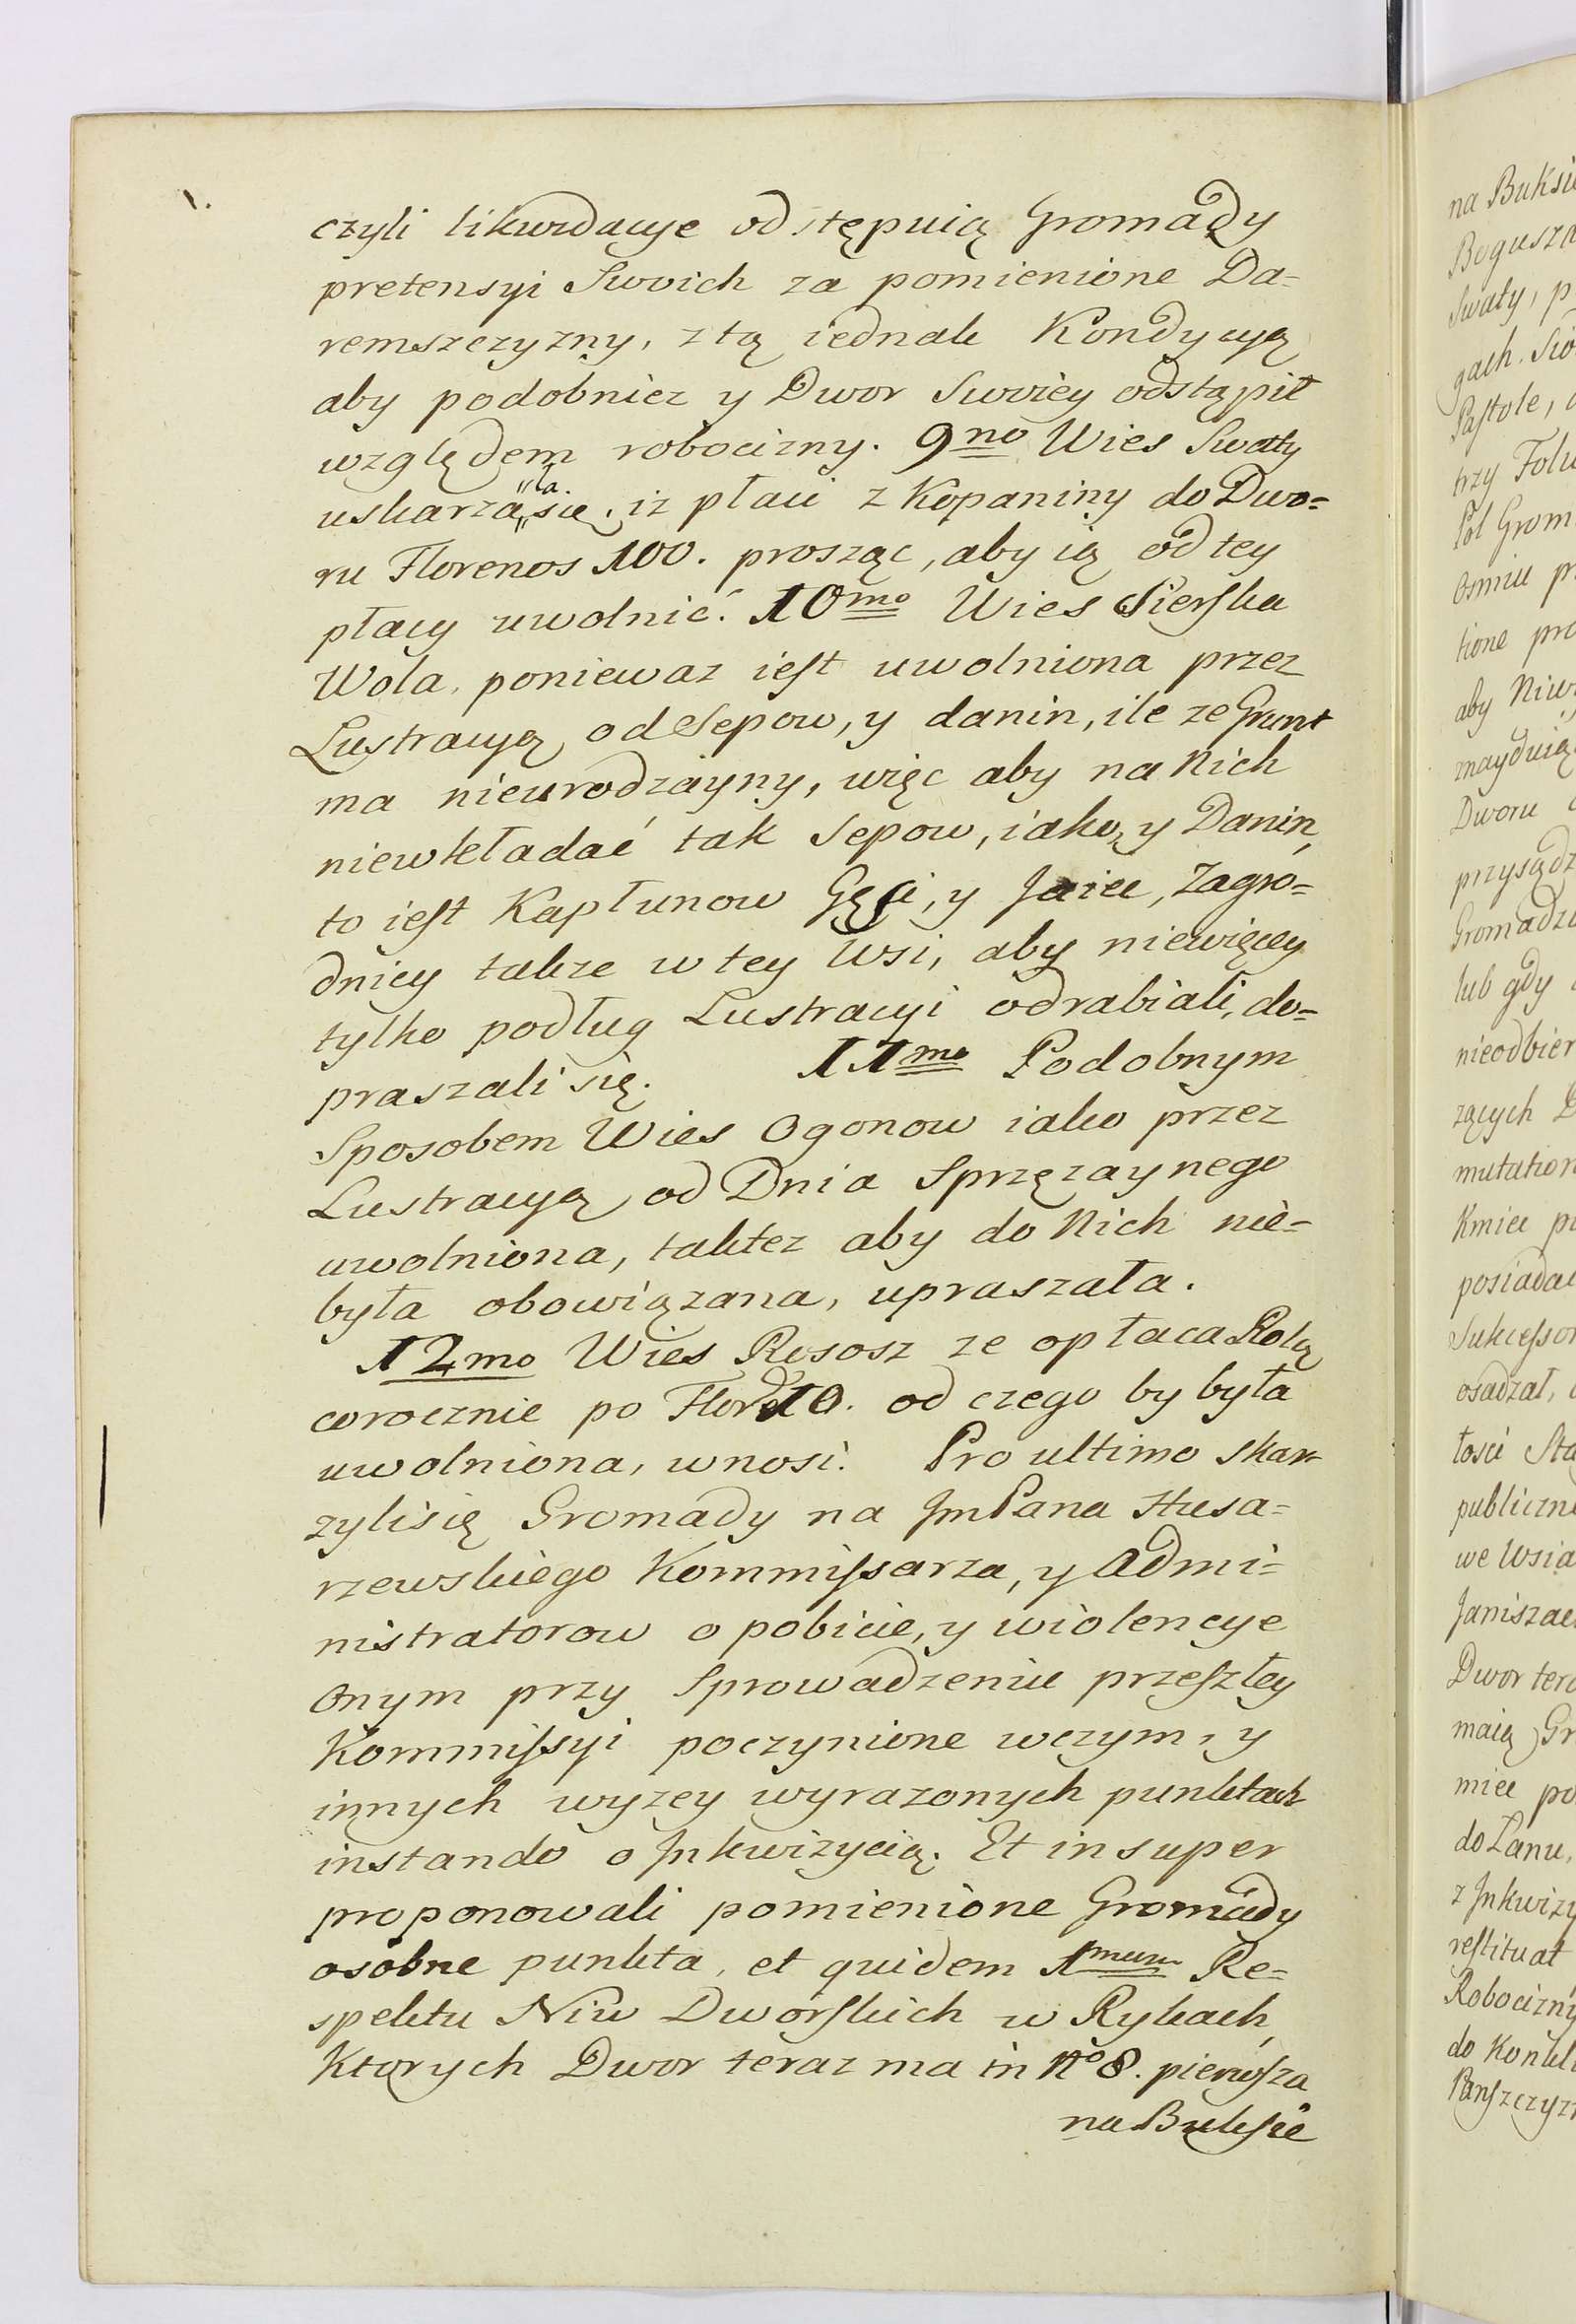 czyli likwidacye odstępuią Gromady
pretensyi Swoich za pomienione Da=
remszczyzny, z tą iednak Kondycyą
aby podobniez y Dwor Swoiey odstąpił
względem robocizny. 9no Wies Swaty
uskarza„ła się, iz płaci z Kopaniny do Dwo=
ru Florenos 100. prosząc, aby ią od tey
płacy uwolnić. 10mo Wies Sierska
Wola, poniewaz iest uwolniona przez
Lustracyą od Sepow, y danin, ile ze Grunt
ma nieurodzayny, więc aby na Nich
niewkładać tak Sepow, iako y Danin,
to iest Kapłunow Gęsi, y Jaiec, Zagro=
dnicy takze w tey Wsi, aby niewięcey
tylko podług Lustracyi odrabiali, do=
praszali się. 11mo Podobnym
Sposobem Wies Ogonow iako przez
Lustracyą od Dnia Sprzęzaynego
uwolniona, taktez aby do Nich nie=
była obowiązana, upraszała.
12mo Wies Rososz ze opłaca Rolą
corocznie po Flor 10. od czego by była
uwolniona, wnosi. Pro ultimo skar=
zyli się Gromady na JmPana Husa=
rzewskiego Kommissarza, y Admi=
nistratorow o pobicie, y wiolencye
onym przy Sprowadzeniu przeszłey
Kommissyi poczynione w czym, y
innych wyzey wyrazonych punktach
instando o Jnkwizycią. Et in super
proponowali pomienione Gromady
osobne punkta, et quidem 1mum Re=
spektu Niw Dworskich w Rykach,
Ktorych Dwor teraz ma in No 8. pierwsza
na Buksie
na Buksie
Bogusza
Swaty, p
gach. Sio
Pastole,
trzy Folw
Pol Grom
Osmiu pr
tione pro
aby Niw
znayduią
Dworu
przysądz
Gromadz
lub gdy
nieodbier
zących D
mutation
Kmiec p
posiadac
Sukcessor
osadzał,
łosci Sta
publiczn
we Wsia
Janiszac
Dwor tera
maią Gr
miec po
do Lanu,
z Jnkwizy
restituat
Robocizny
do Konkl
Panszczyz